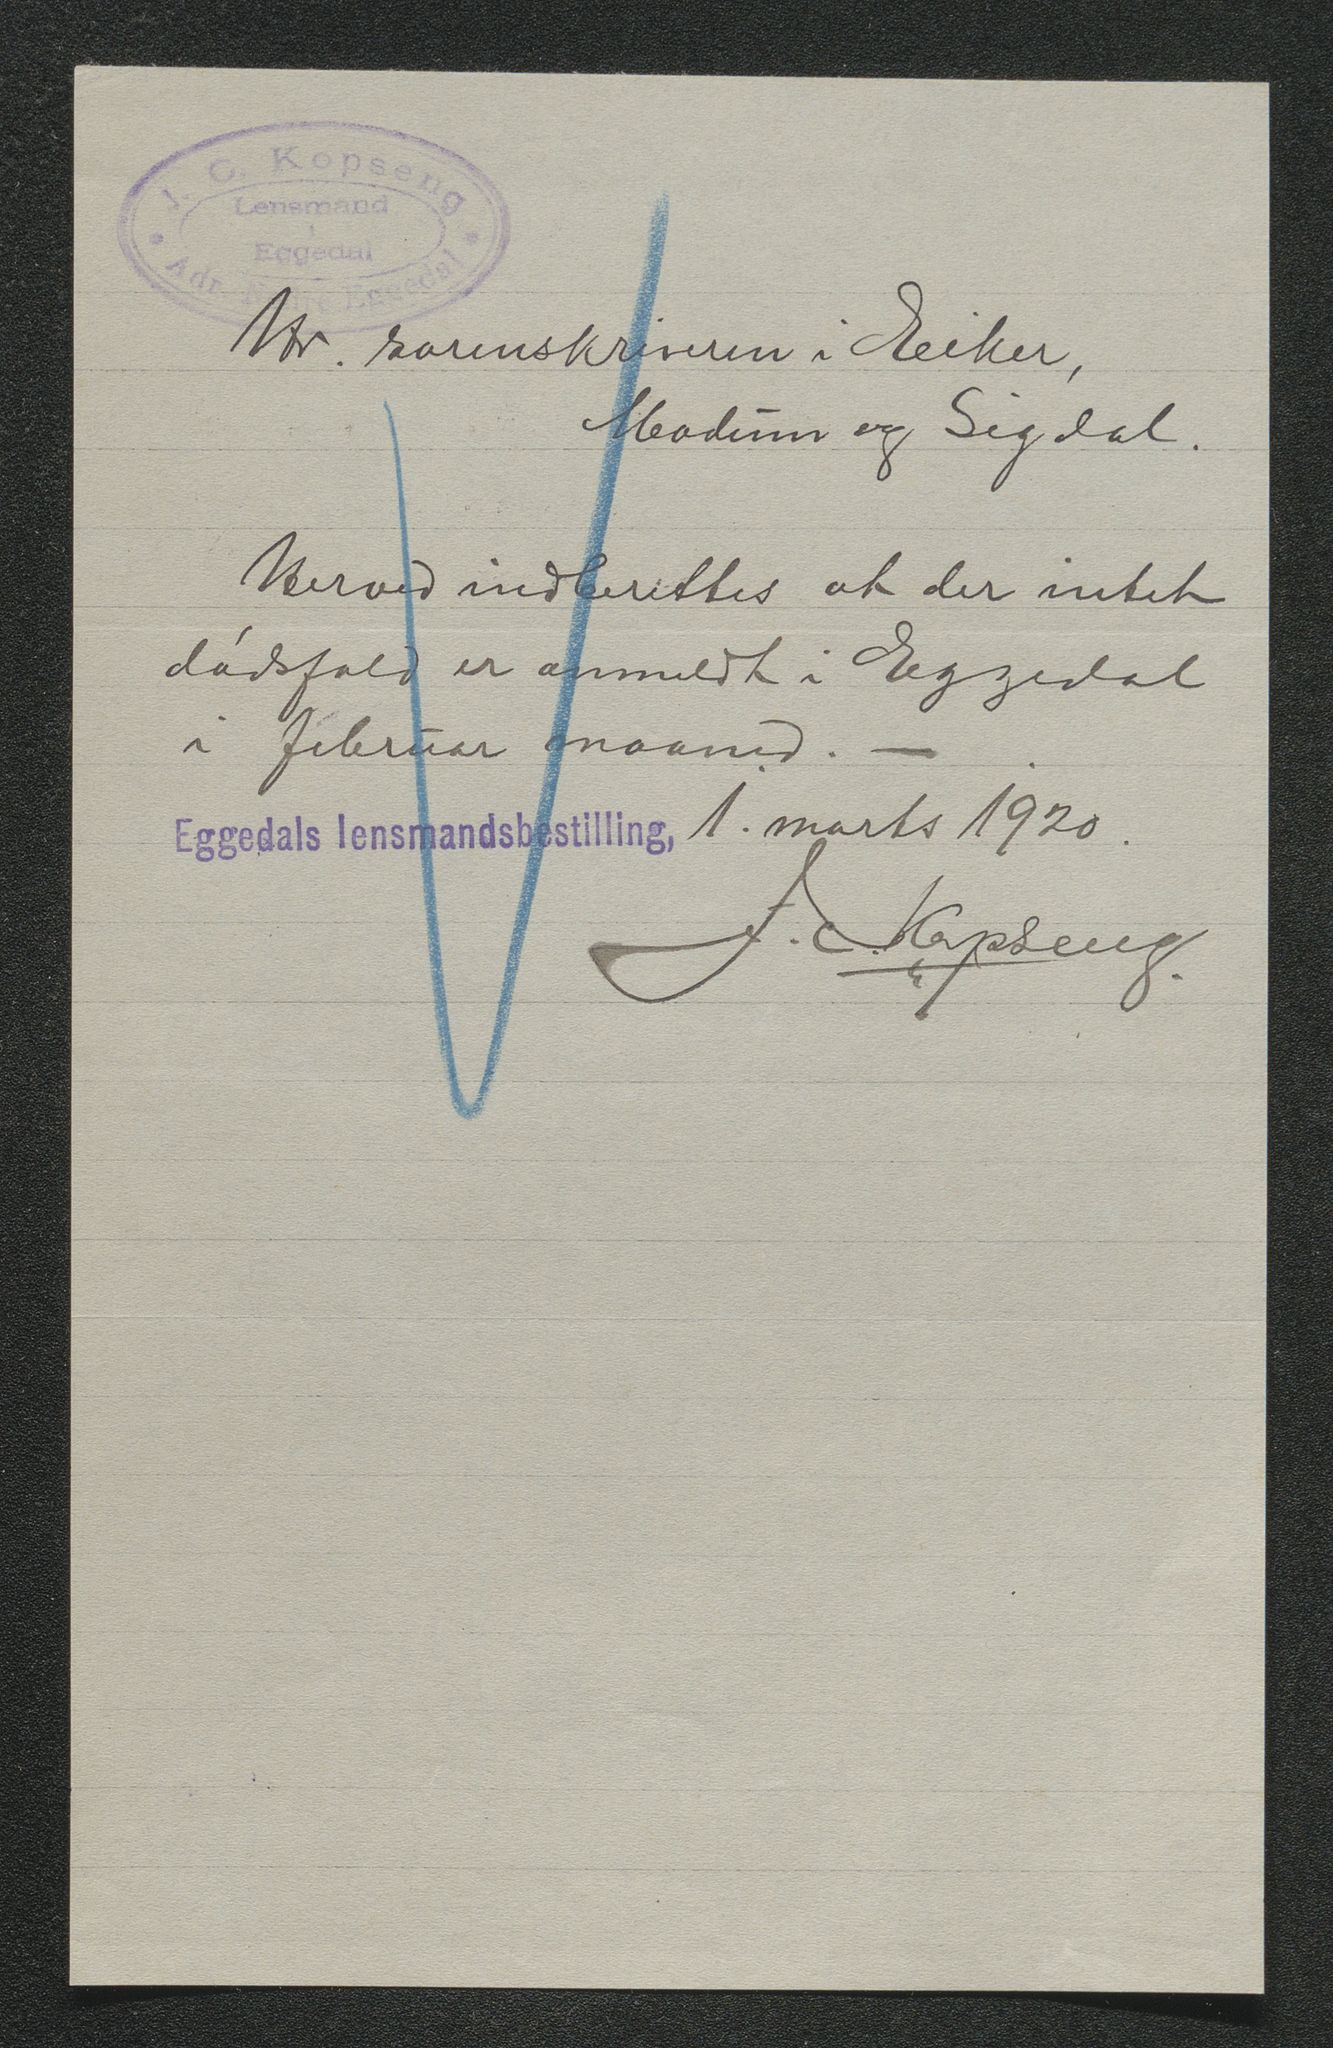 J. C. Kopseng
Lensmand
i
Eggedal
Adr. Nedre Eggedal
Hr. sorenskriveren i Eeiker,
Modum og Sigdal.
Herved indberettes at der intet
dódsfald er anmeldt i Eggedal
i februar maaned. —
Eggedals lensmandsbestilling, 1. marts 1920.
J. C. Kopseng.